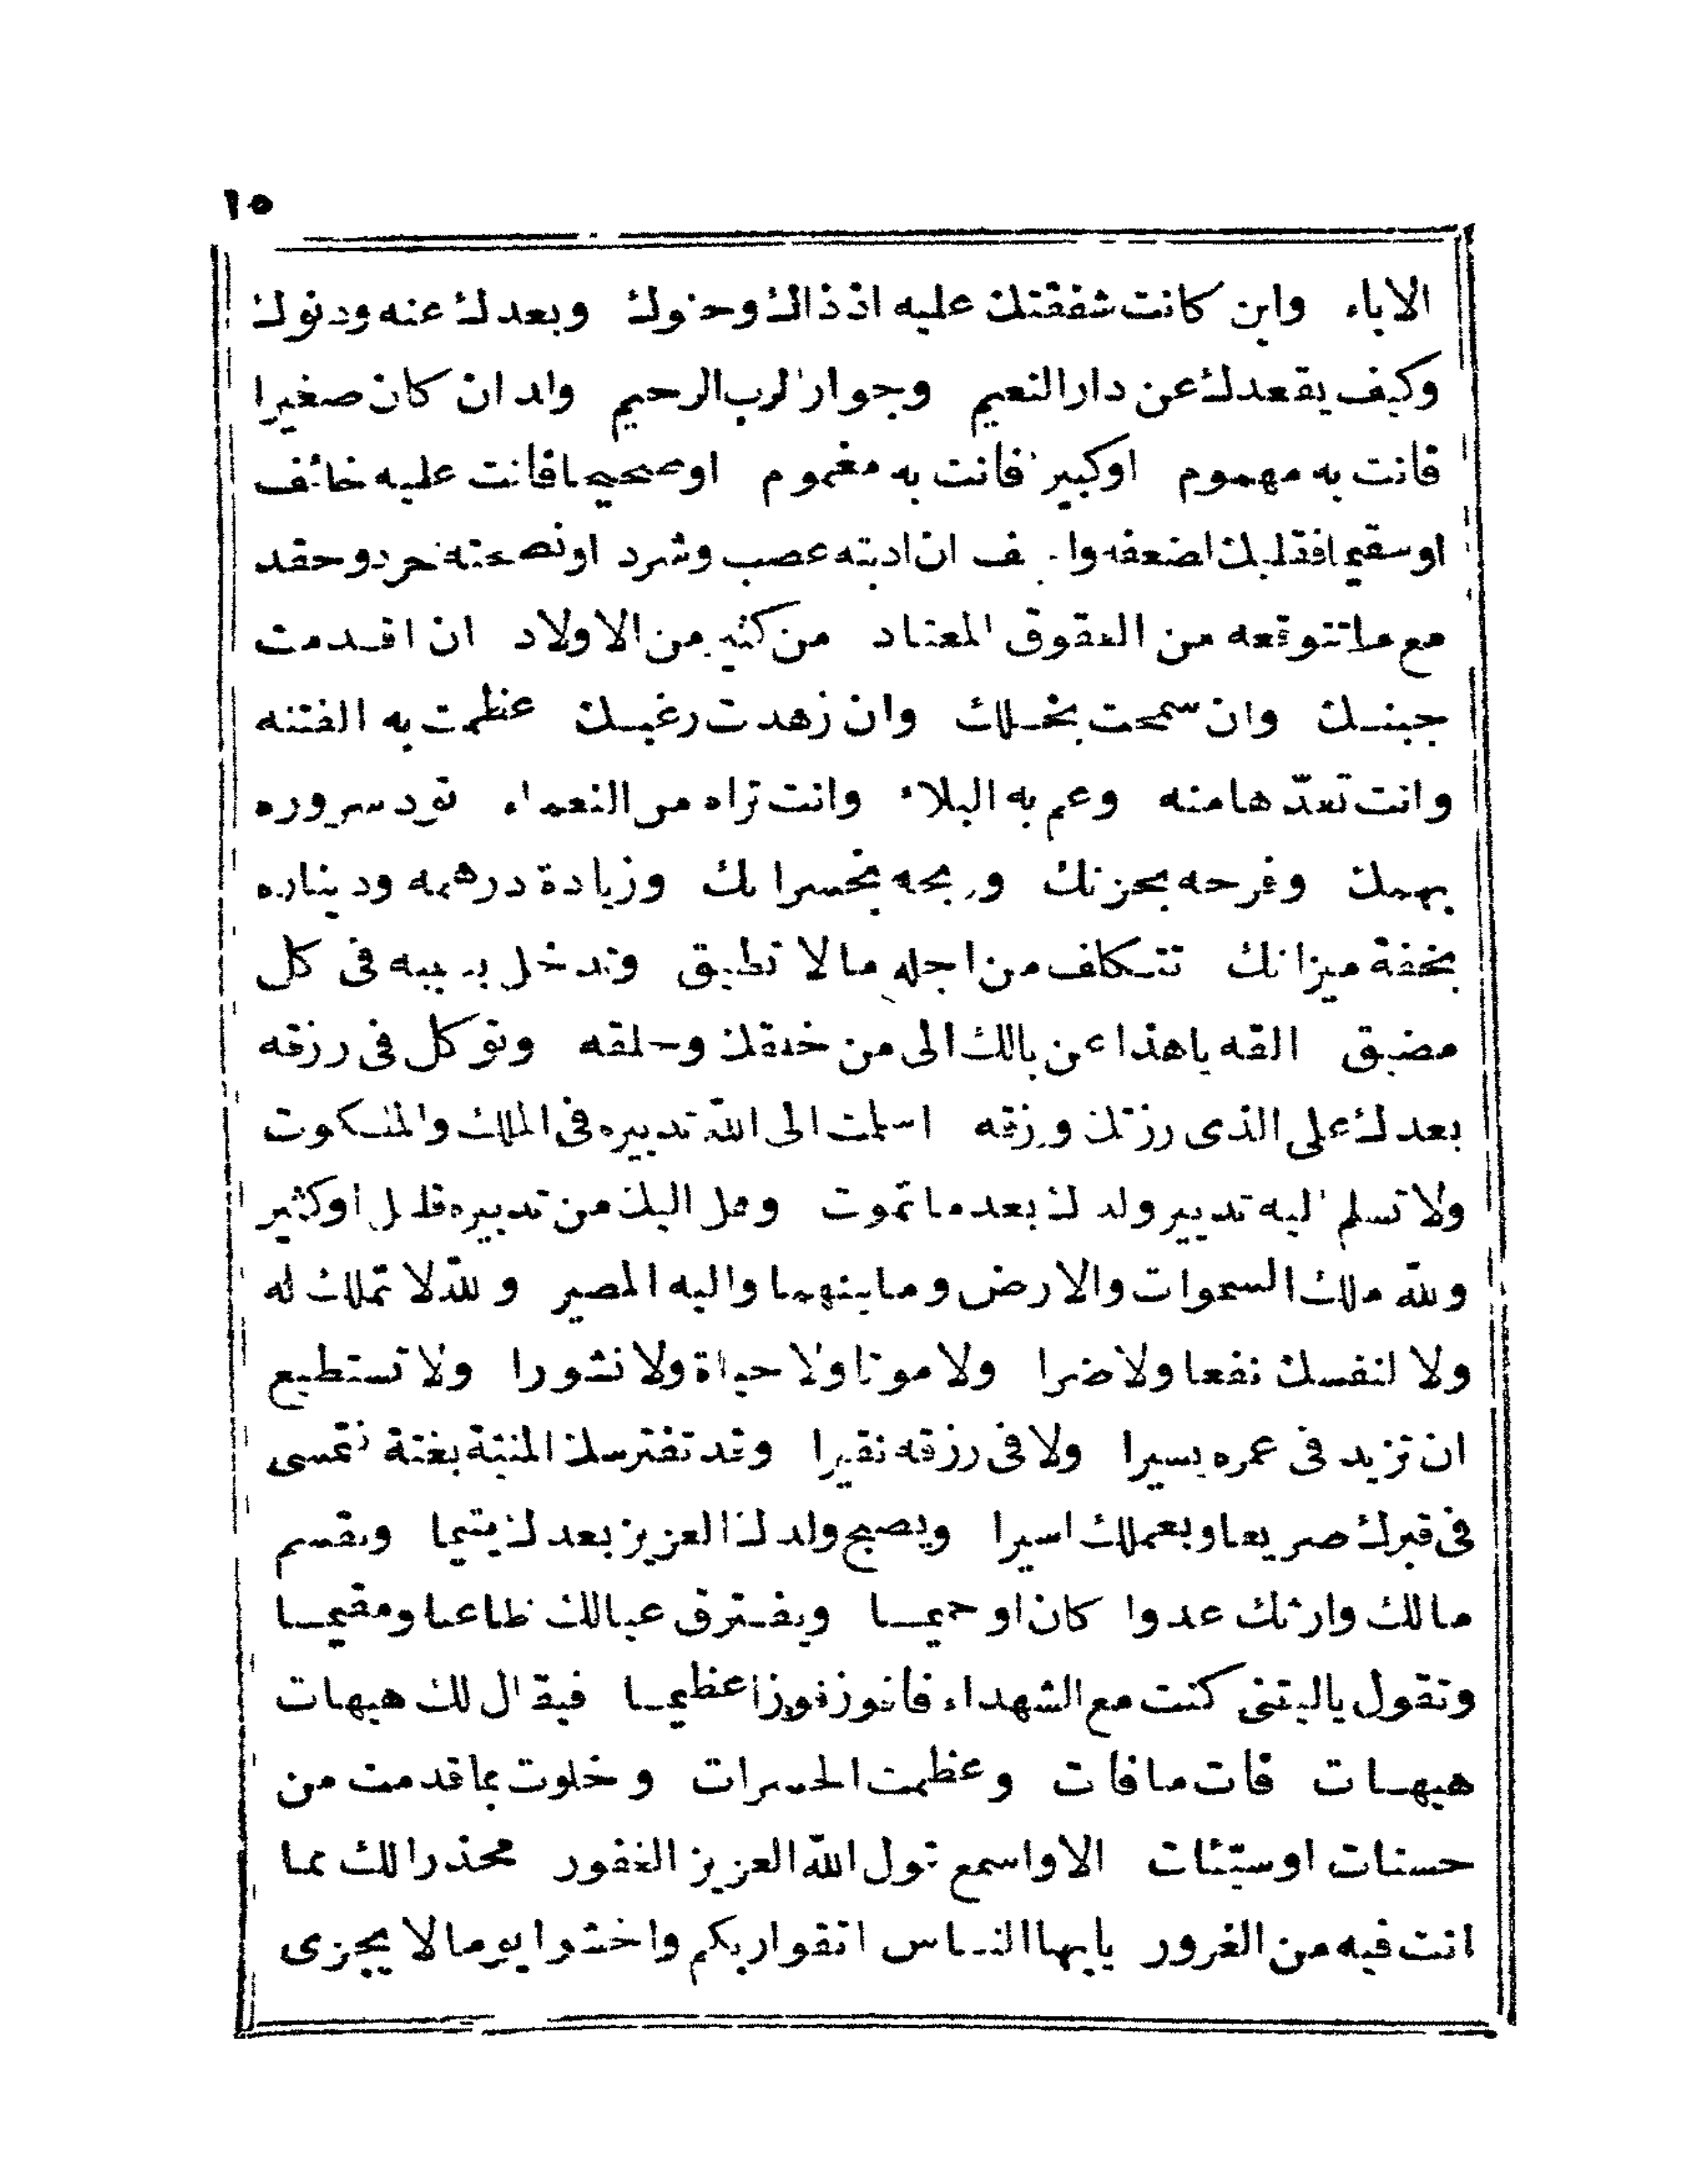 ١٥
الاباء واين كانت شفقتك عليه اذ ذاك وحنوك وبعدك عنه ودنوك
وكيف يقعدك عن دار النعيم وجوار الرب الرحيم ولد ان كان صغيرا
فانت به مهموم او كبيرا فانت به مغموم او صحيحا فانت عليه خائف
او سقيما فقلبك لضعفه ان ادبته غضب وشرد او نصحته حرد وحقد
مع ما تتوقعه من العقوق المعتاد من كثير من الاولاد ان اقدمت
جبنك وان سمحت بخلك وان زهدت رغبك عظمت به الفتنه
وانت تعدّها منه وعم به البلاء وانت تراه من النعماء تود سروره
بهمك وفرحه بحزنك وربحه بخسرانك وزيادة درهمه وديناره
بخفة ميزانك تتكلف من اجله ما لا تطيق وتدخل بسببه فى كل
مضيق القه ياهذا عن بالك الى من خلقك وخلقه وتوكل فى رزقه
بعدك على الذى رزقك ورزقه اسلمت الى الله تدبيره فى الملك والملكوت
ولا تسلم اليه تدبير ولدك بعد ما تموت وهل اليك من تدبيره قليل او كثير
ولله ملك السموات والارض وما بينهما واليه المصير والله لا تملك له
ولا لنفسك نفعا ولا ضرا ولا موتا ولا حياة ولا نشورا ولا تستطيع
ان تزيد فى عمره يسيرا ولا فى رزقه نقيرا وقد تفترسك المنية بغتة فتمسى
فى قبرك صريعا وبعملك اسيرا ويصبح ولدك العزيز بعدك يتيما ويقسم
مالك وارثك عدوا كان او حميما ويفترق عيالك ظاعنا ومقيما
وتقول ياليتنى كنت مع الشهداء فافوز فوزا عظيما فيقال لك هيهات
هيهات فات ما فات وعظمت الحسرات وخلوت بما قدمت من
حسنات او سيّئات الا واسمع قول الله العزيز الغفور محذرا لك مما
انت فيه من الغرور يايها الناس اتقوا ربكم واخشوا يوما لا يجزى